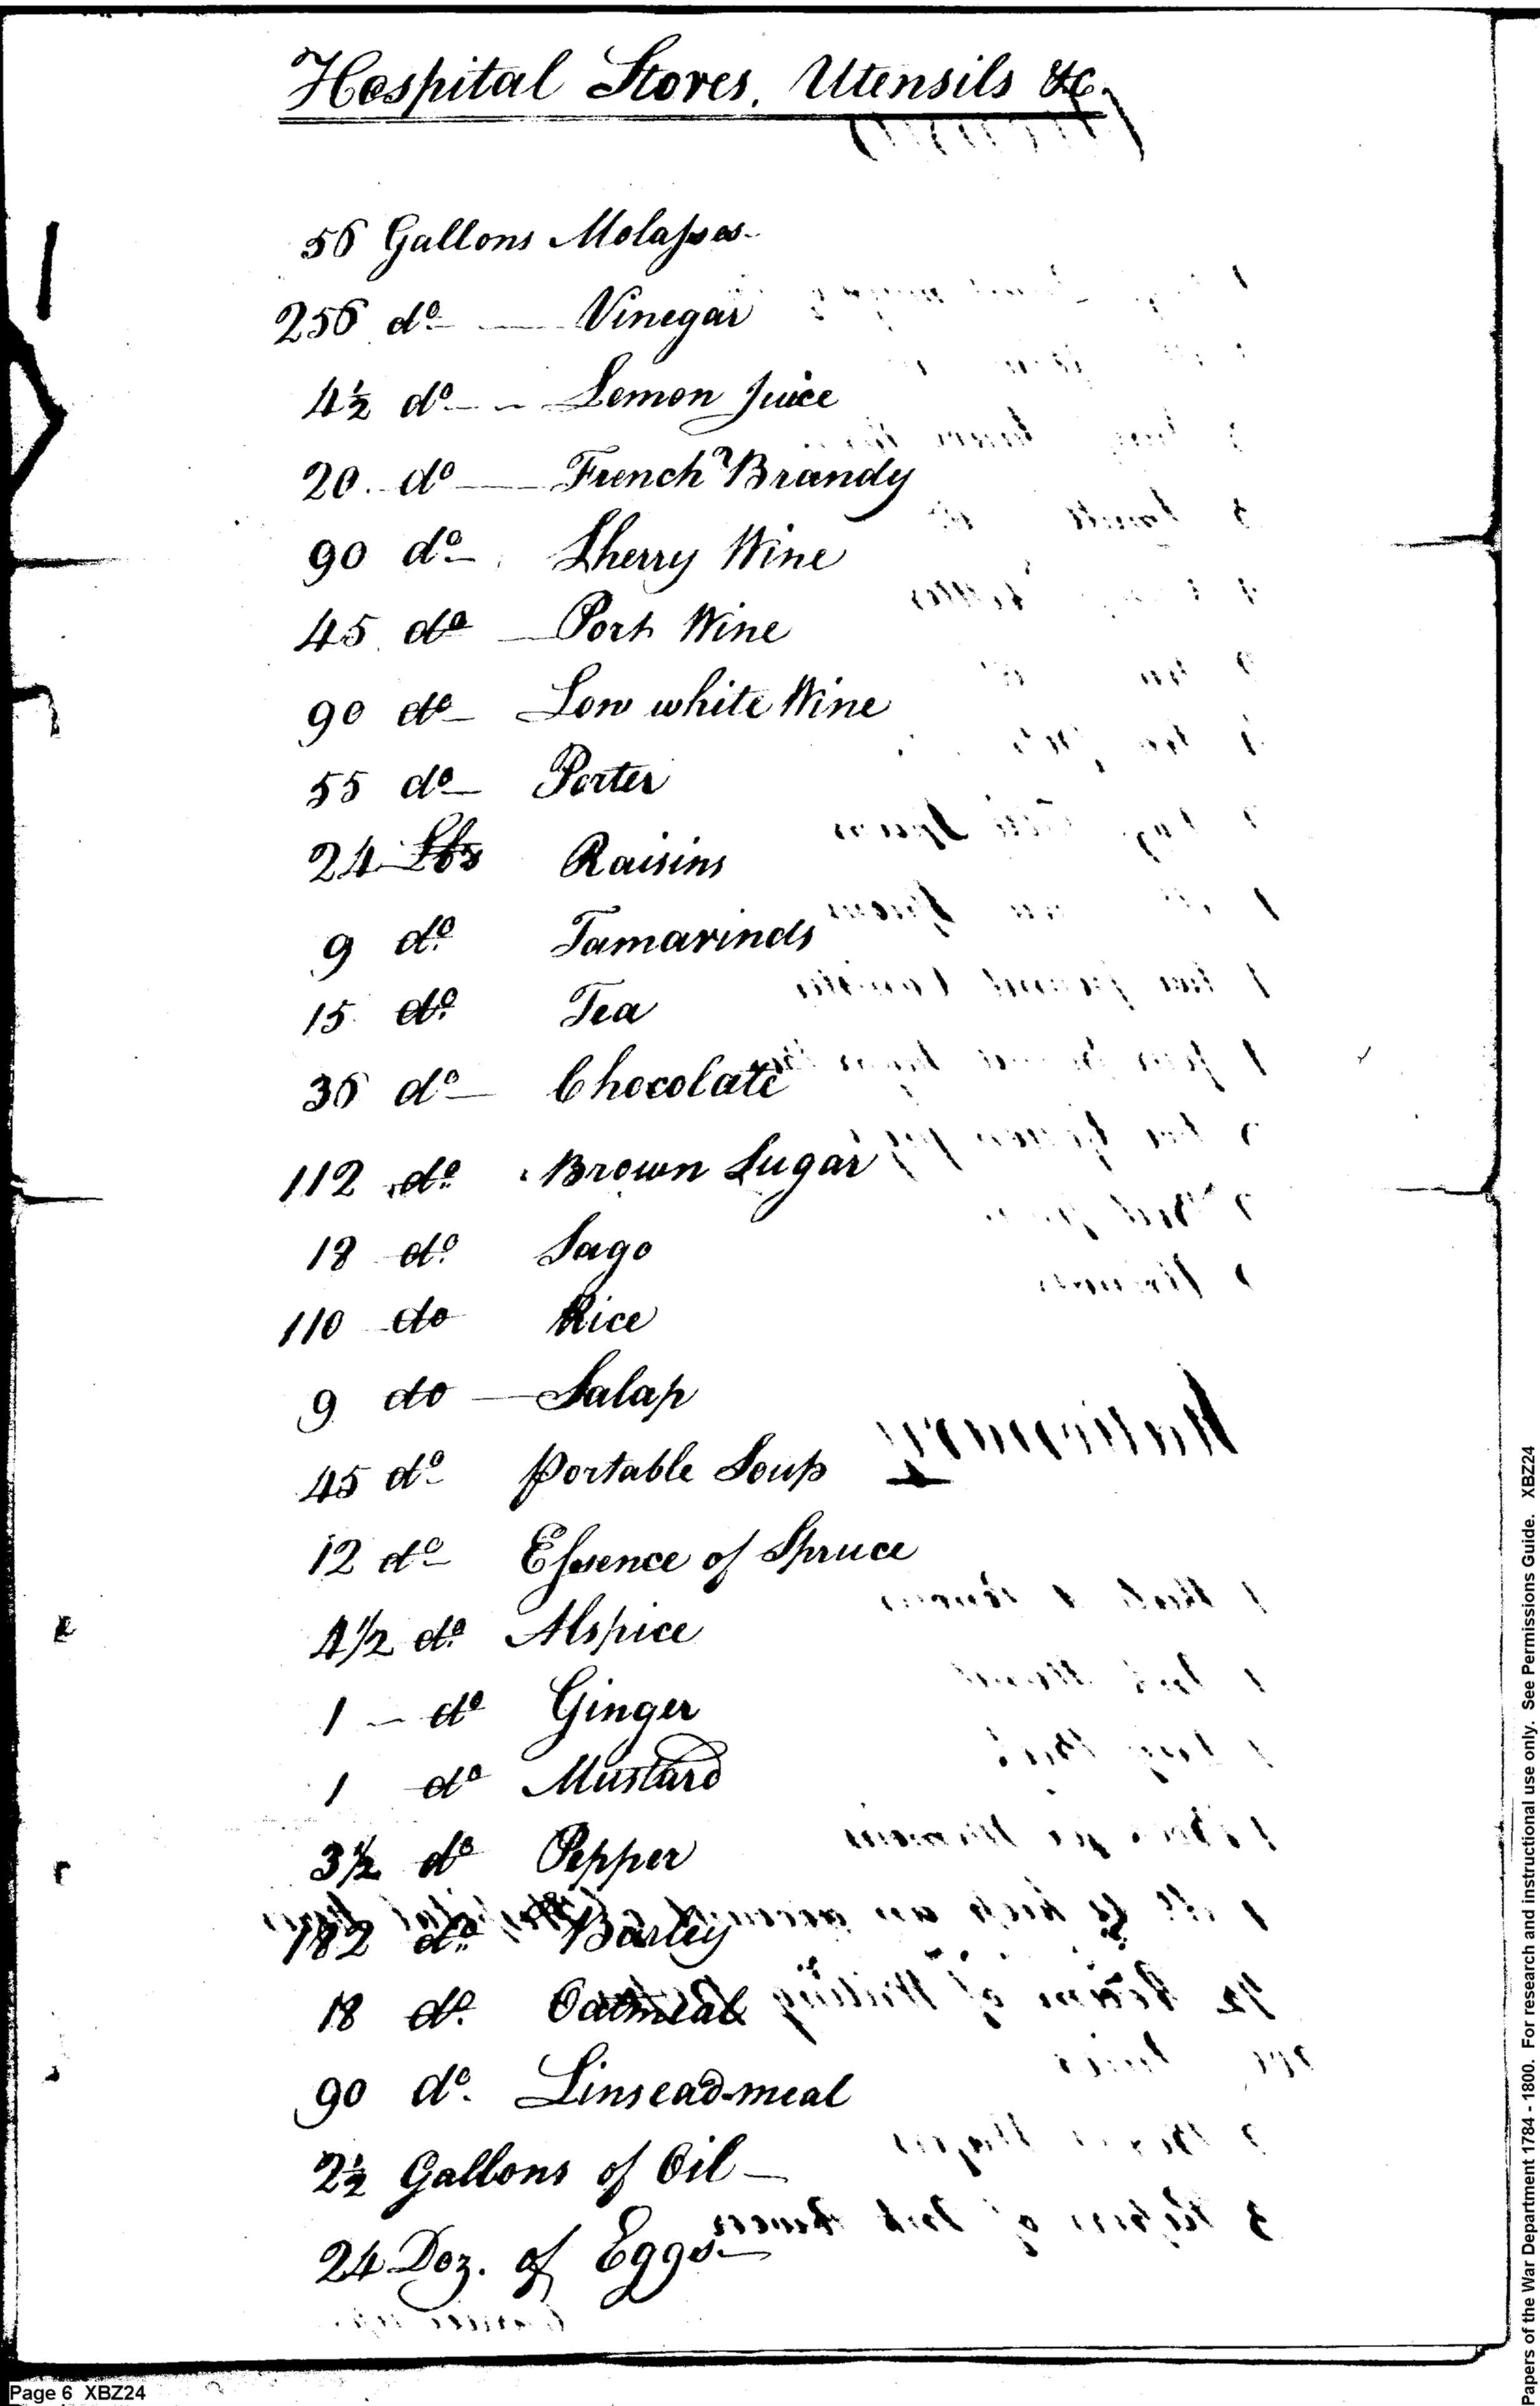 Hospital Stores, Utensils &c.
56 Gallons Molasses
256 do Vinegar
4½ do Lemon Juice
20 do French Brandy
90 do Sherry Wine
45 do Port Wine
90 do Low white Wine
55 do Porter
24 Lbs Raisins
9 do Tamarinds
15 do Tea
36 do Chocolate
112 do Brown Sugar
18 do Sago
110 do Rice
9 do Salap
45 do Portable Soup
12 do Essence of Spruce
4½ do Alspice
1 do Ginger
1 do Mustard
3½ do Pepper
182 do Barley
18 do Oatmeal
90 do Linsead-meal
2½ Gallons of Oil
24 Doz. of Eggs
Page 6 XBZ24
Papers of the War Department 1784 - 1800. For research and instructional use only. See Permissions Guide. XBZ24